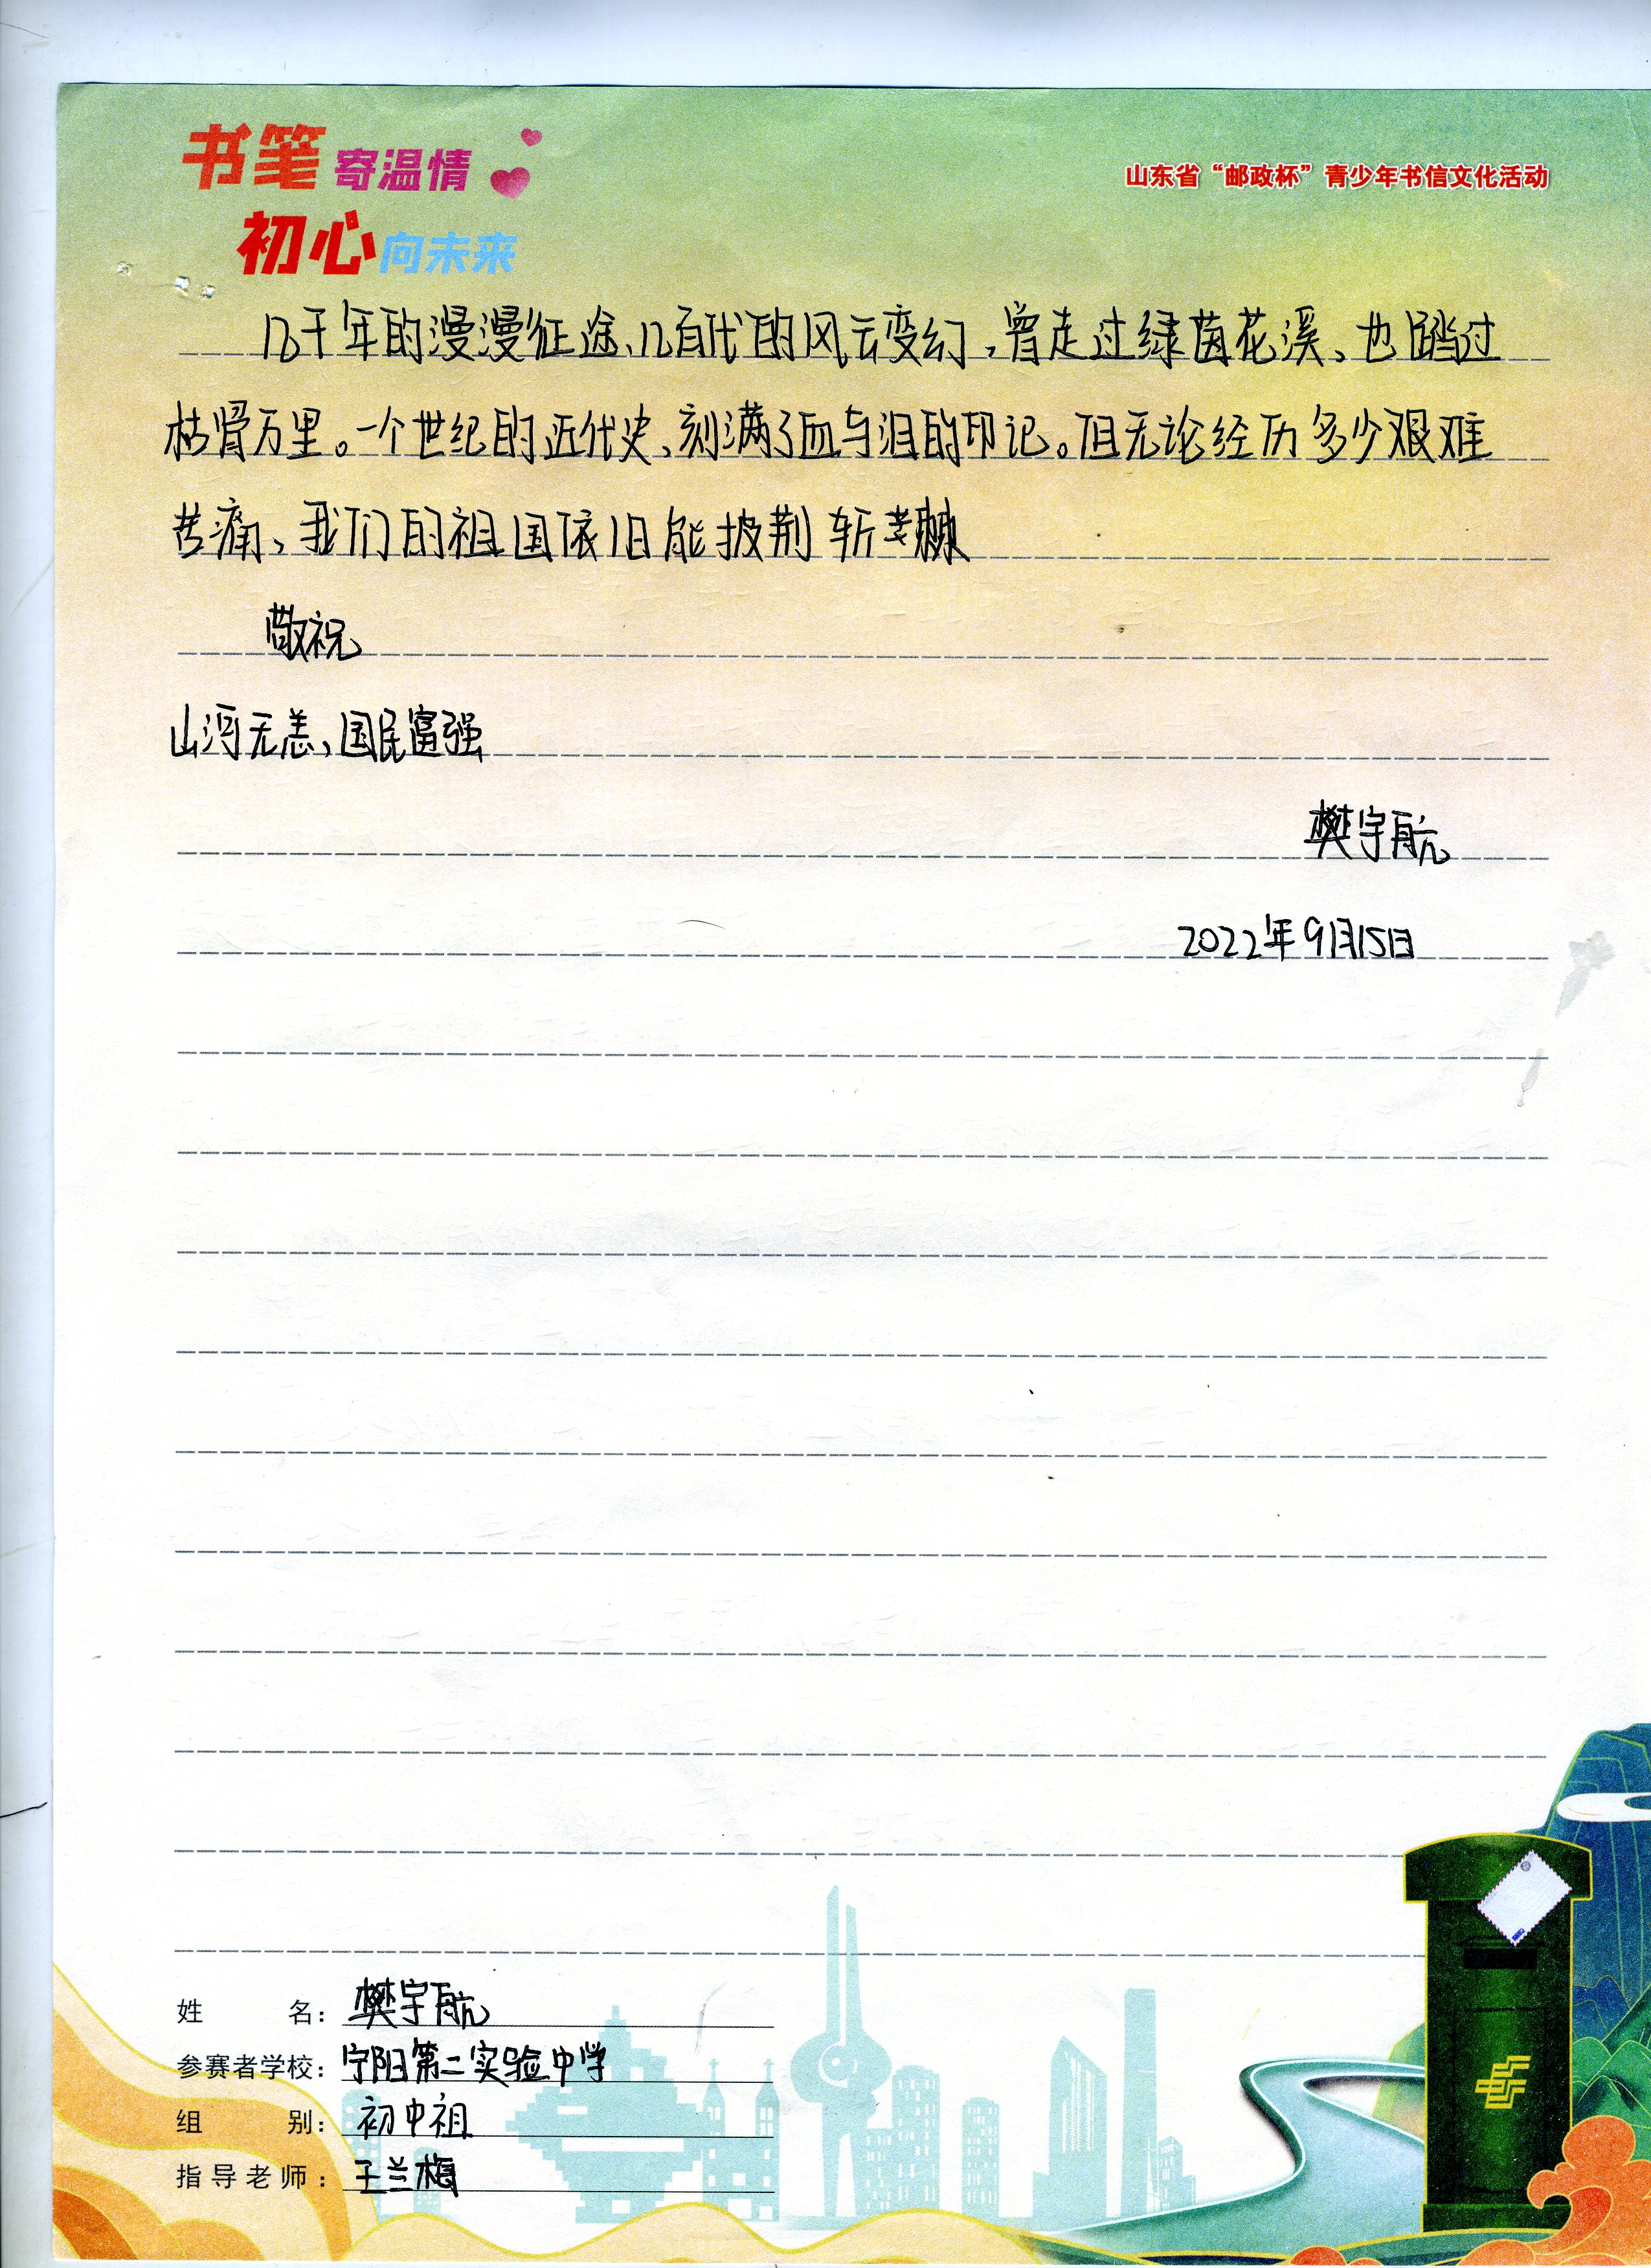 书笔寄温情
初心向未来
山东省“邮政杯”青少年书信文化活动
几千年的漫漫征途、几百代的风云变幻,曾走过绿茵花溪、也踏过
枯骨万里。一个世纪的近代史、刻满了血与泪的印记。但无论经历多少艰难
苦痛,我们的祖国依旧能披荆斩棘
敬祝
山河无恙,国民富强
樊宇航
2022年9月15日
姓名:樊宇航
参赛者学校:宁阳第二实验中学
组别:初中祖
指导老师:王兰梅